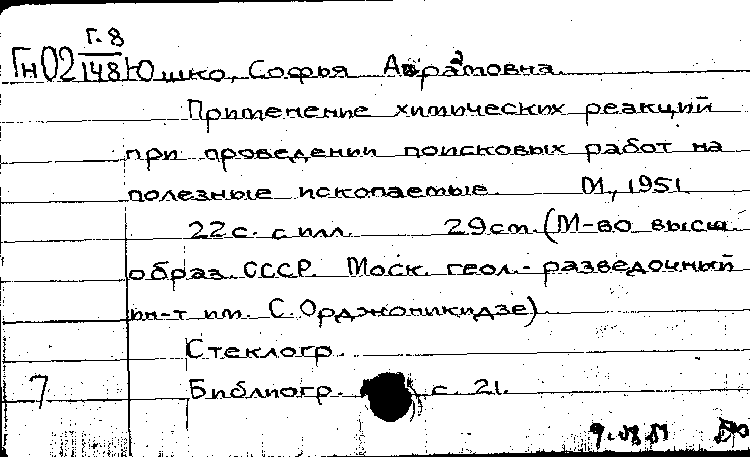 Г.8
Гн02 148 Юшко, Софья Абрамовна.
Применение химических реакций
при проведении поисковых работ на
полезные ископаемые. М., 1951.
22с. с илл. 29см. (М-во высш.
образ. СССР. Моск. геол.-разведочный
ин-т им. С. Орджоникидзе)
Стеклогр.
7 Библиогр. с. 21.